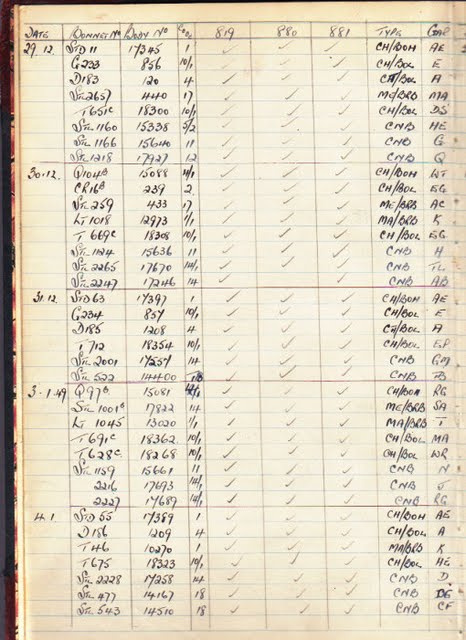 DATE BONNET Nº BODY Nº CODE 819 880 881 TYPE GAR
29.12. STD 11 17345 1 ✓ ✓ ✓ CH/BOH AE
G233 856 10/1 ✓ ✓ ✓ CH/BOL E
D183 120 4 ✓ ✓ ✓ CH/BOL A
STL 2657 440 17 ✓ ✓ ✓ ME/BRB MA
T651C 18300 10/1 ✓ ✓ ✓ CH/BOL DS
STL 1160 15338 5/2 ✓ ✓ ✓ CNB HE
STL 1166 15640 11 ✓ ✓ ✓ CNB G
STL 1218 17927 12 ✓ ✓ ✓ CNB Q
30.12. Q104B 15088 4/1 ✓ ✓ ✓ CH/BOH WT
CR16B 239 2 ✓ ✓ ✓ CH/BOL EG
STL 259 433 17 ✓ ✓ ✓ ME/BRB AC
LT 1018 12973 1/1 ✓ ✓ ✓ MA/BRB K
T 669C 18308 10/1 ✓ ✓ ✓ CH/BOL EG
STL 1124 15636 11 ✓ ✓ ✓ CNB H
STL 2265 17670 14/1 ✓ ✓ ✓ CNB TL
STL 2247 17246 14 ✓ ✓ ✓ CNB AB
31.12. STD 63 17397 1 ✓ ✓ ✓ CH/BOH AE
G234 857 10/1 ✓ ✓ ✓ CH/BOL E
D185 1208 4 ✓ ✓ ✓ CH/BOL A
T 712 18354 10/1 ✓ ✓ ✓ CH/BOL EP
STL 2001 17257 14 ✓ ✓ ✓ CNB GM
STL 522 14400 18 ✓ ✓ ✓ CNB TB
3.1.49 Q97B 15081 4/1 ✓ ✓ ✓ CH/BOH RG
STL 1001B 17822 14 ✓ ✓ ✓ ME/BRB SA
LT 1045 13020 1/1 ✓ ✓ ✓ MA/BRB T
T 691C 18362 10/1 ✓ ✓ ✓ CH/BOL MA
T 628C 18268 10/1 ✓ ✓ ✓ CH/BOL WR
STL 1159 15661 11 ✓ ✓ ✓ CNB N
2216 17693 14/1 ✓ ✓ ✓ CNB J
2227 17689 14/1 ✓ ✓ ✓ CNB RG
4.1 STD 55 17389 1 ✓ ✓ ✓ CH/BOH AE
D186 1209 4 ✓ ✓ ✓ CH/BOL A
T46 10270 1 ✓ ✓ ✓ MA/BRB K
T675 18323 10/1 ✓ ✓ ✓ CH/BOL HE
STL 2228 17258 14 ✓ ✓ ✓ CNB D
STL 477 14167 18 ✓ ✓ ✓ CNB
STL 543 14510 18 ✓ ✓ ✓ CNB CF